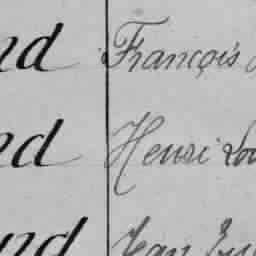 nd François
nd Henri Lou
nd Jean